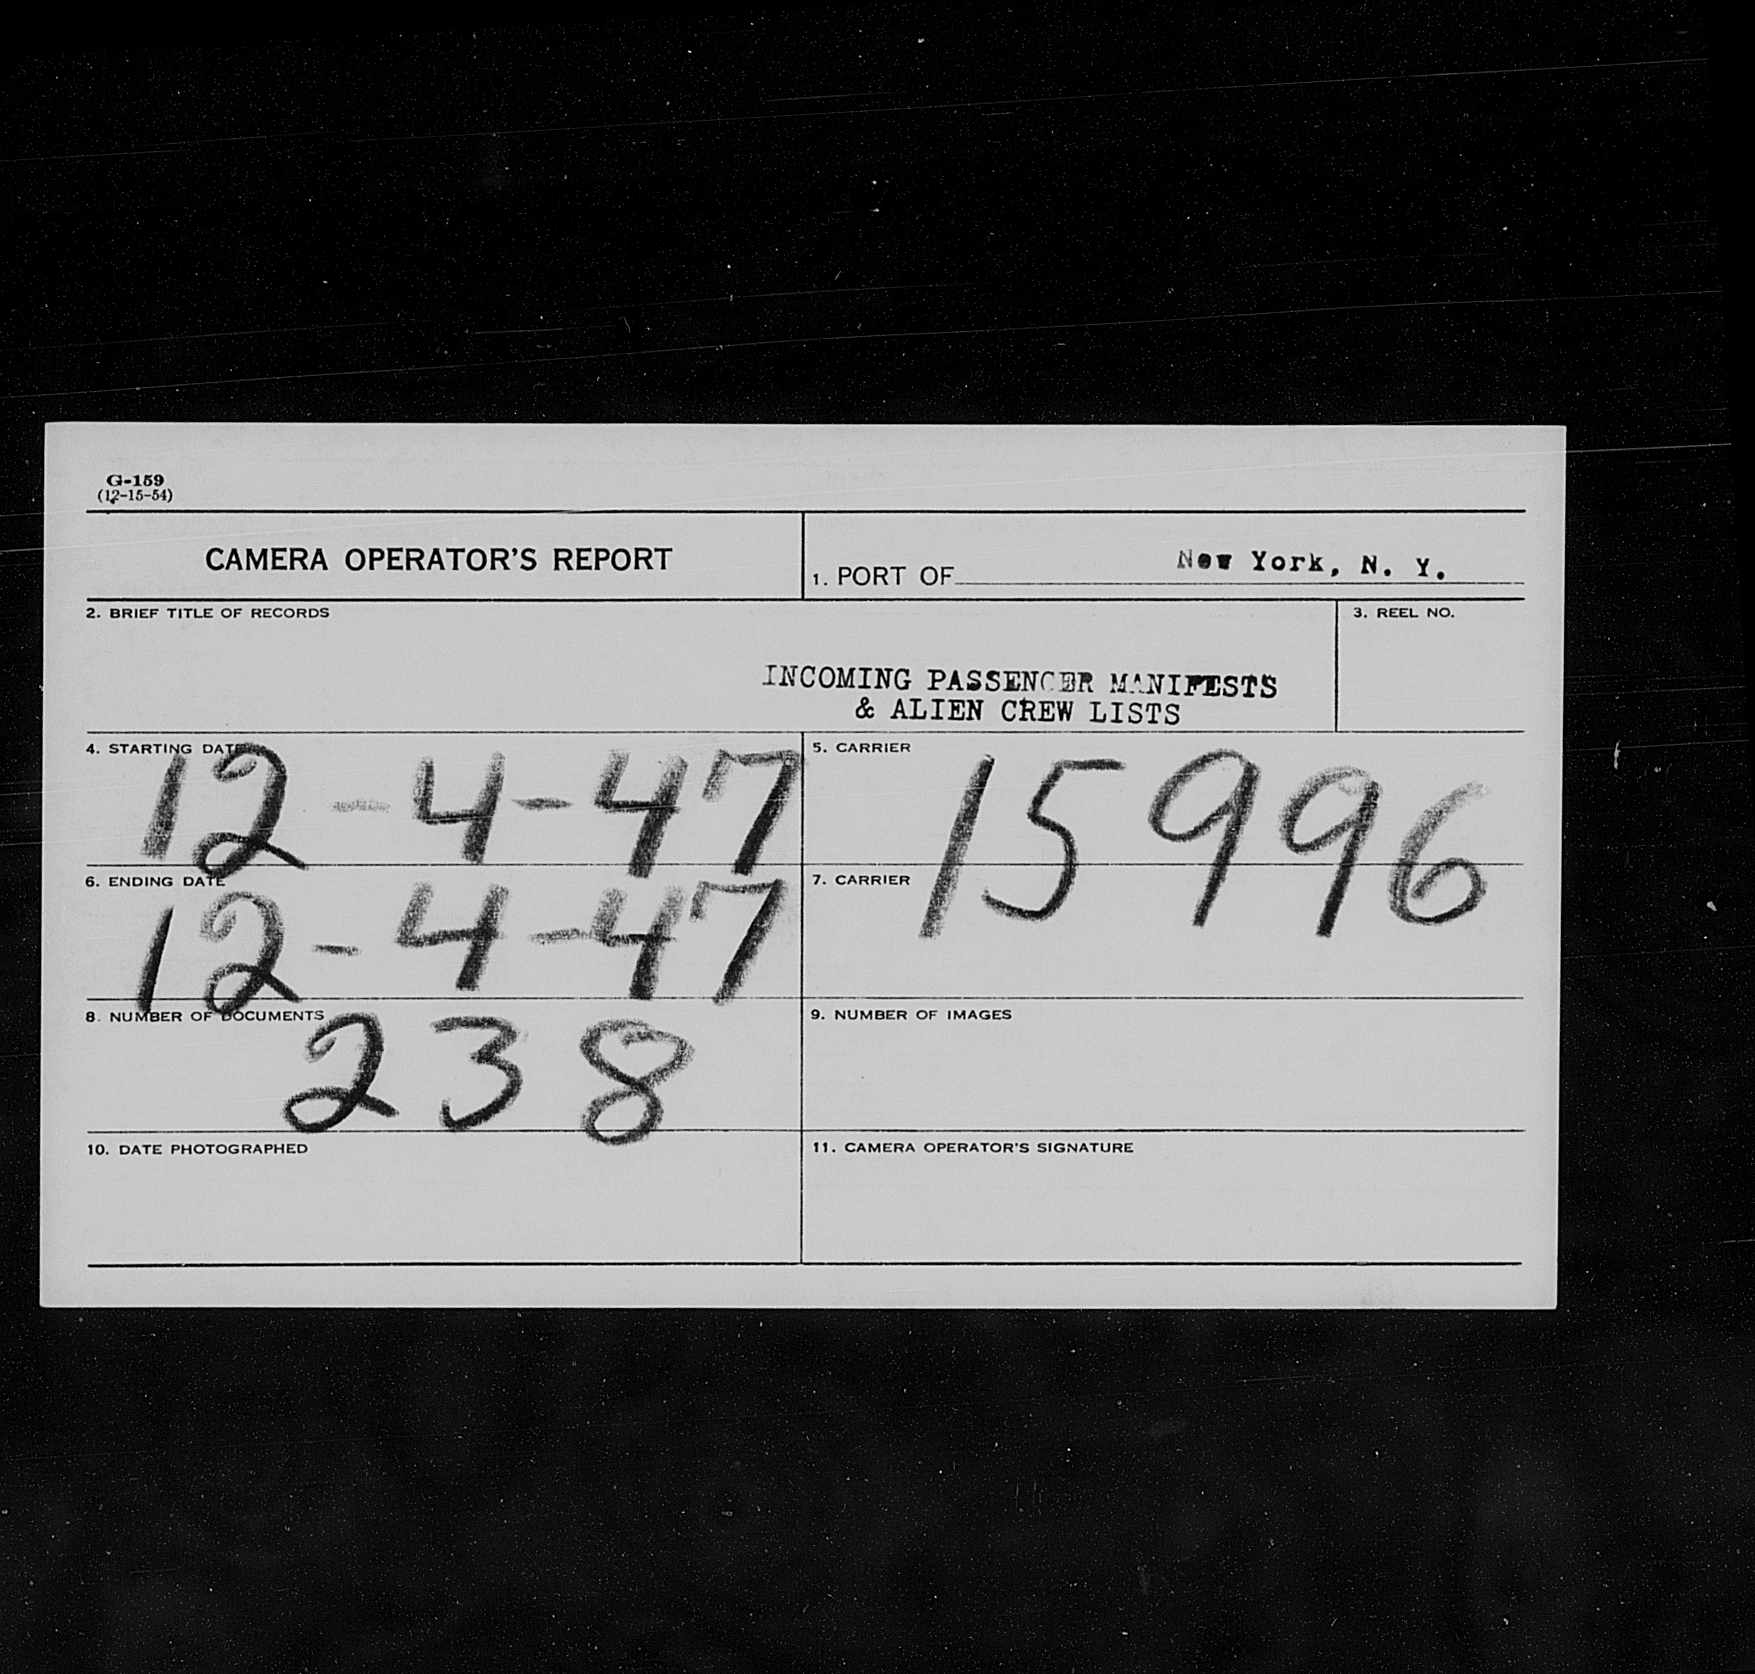 G-159
(12-15-54)
CAMERA OPERATOR'S REPORT
1. PORT OF New York, N. Y.
2. BRIEF TITLE OF RECORDS
3. REEL NO.
INCOMING PASSENGER MANIFESTS
& ALIEN CREW LISTS
4. STARTING DATE
12-4-47
5. CARRIER
15996
6. ENDING DATE
12-4-47
7. CARRIER
8. NUMBER OF DOCUMENTS
238
9. NUMBER OF IMAGES
10. DATE PHOTOGRAPHED
11. CAMERA OPERATOR'S SIGNATURE